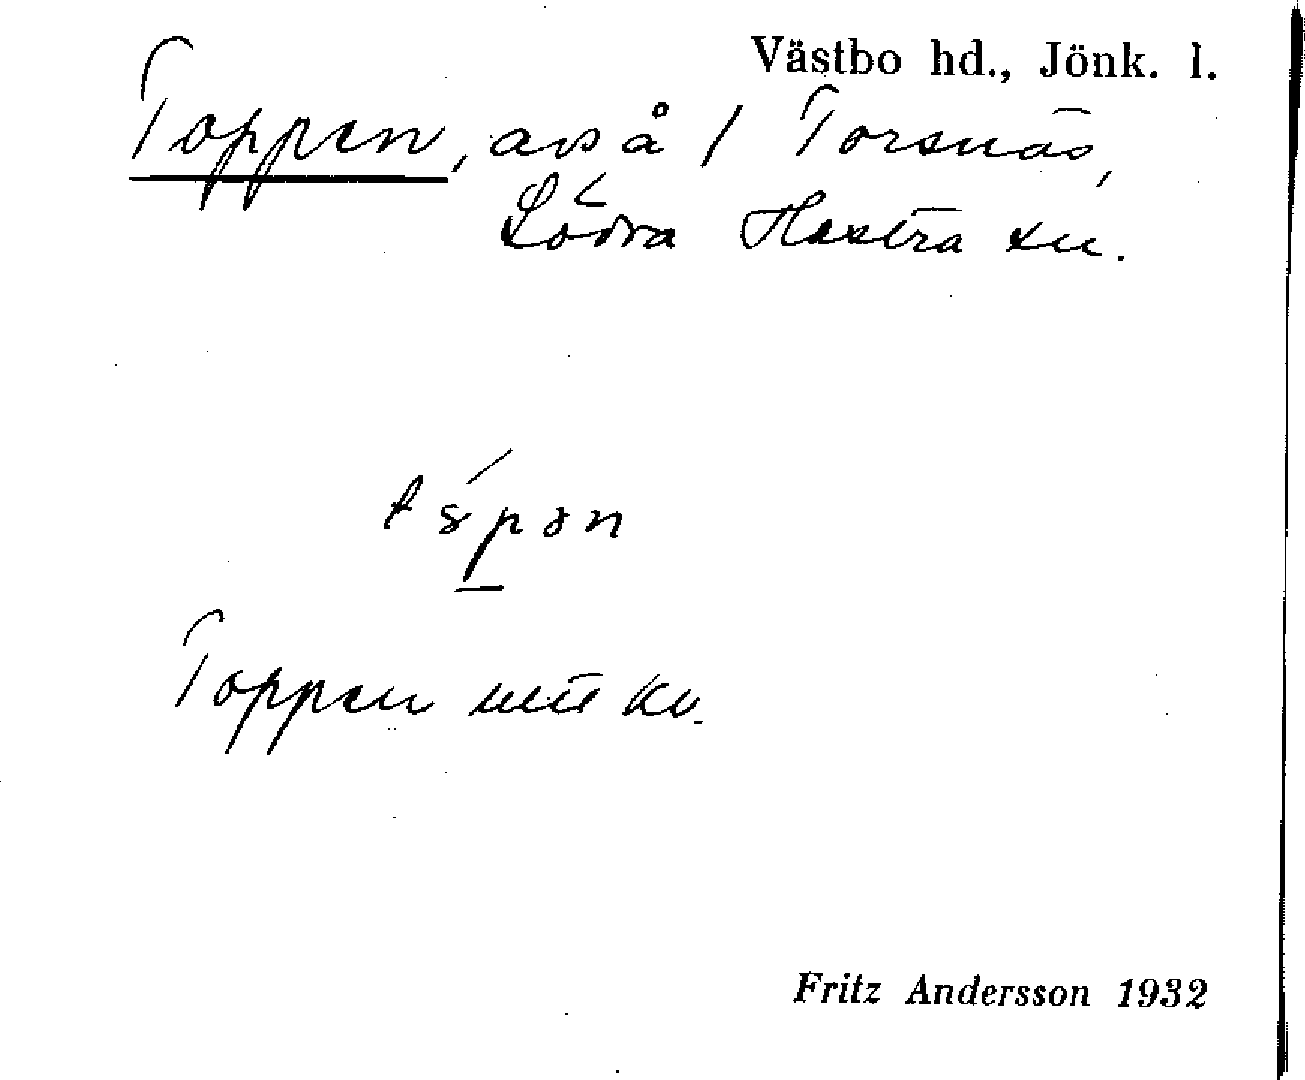 Västbo hd., Jönk. l.
Toppen, avs å / Torsnäs,
Södra Hestra sn.
Toppen
Fritz Andersson 1932